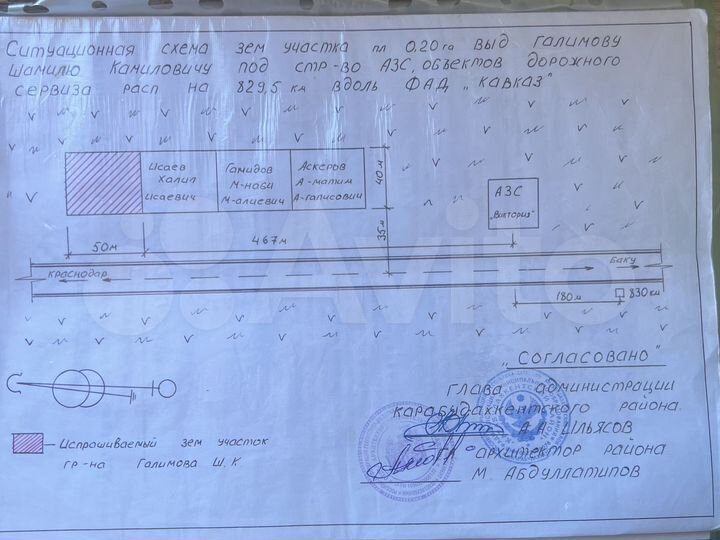 Ситуационная схема зем участка пл 0,20 га выд Галимову
Шамилю Камиловичу под стр-во АЗС, объектов дорожного
сервиза расп на 829,5 км вдоль ФАД „Кавказ"
Исаев
Халил
Исаевич
Гамидов
М-наби
М-алиевич
Аскеров
А-матим
А-гаписович
40м
35м
АЗС
„Виктория"
50м
467м
Краснодар
Баку
180м
830 км
Avito
„Согласовано"
глава администрации
Карабудахкентского района.
А.А. Ильясов
архитектор района
М. Абдуллатипов
- Испрашиваемый зем участок
гр-на Галимова Ш.К